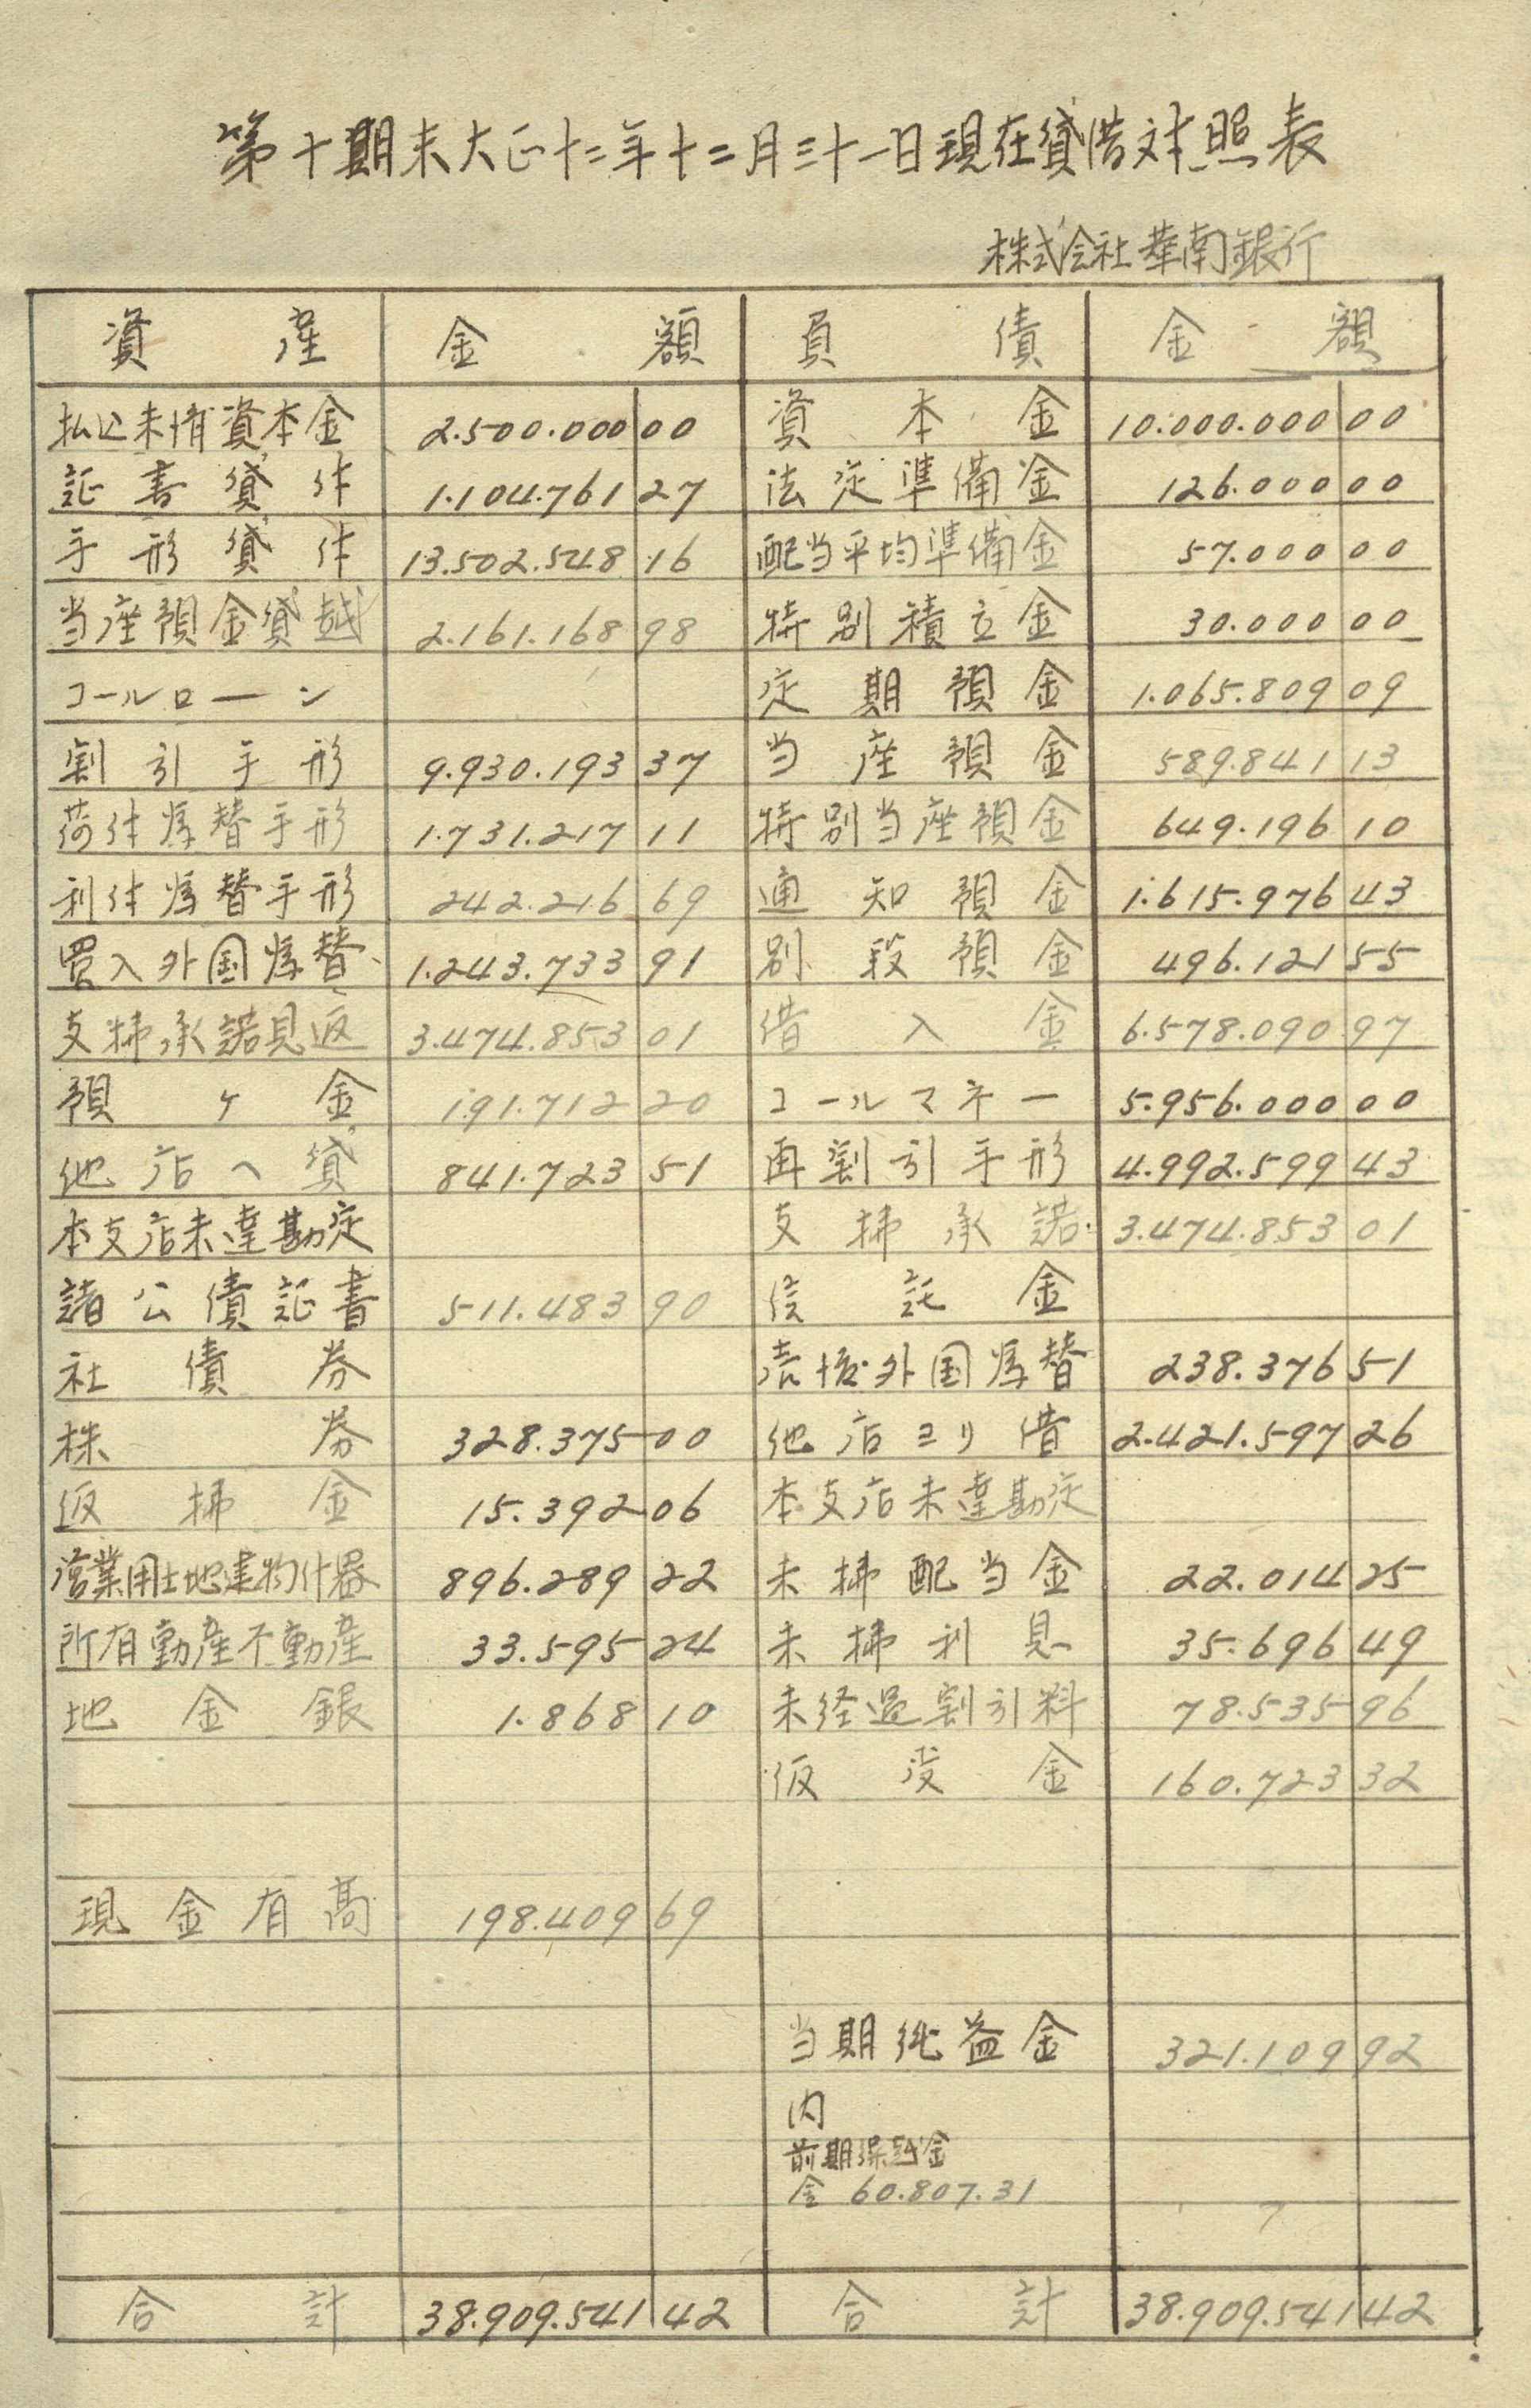 第十期末大正十二年十二月三十一日現在貸借対照表
株式会社華南銀行
資産 金額 負債 金額
払込未済資本金 2.500.000 00 資本金 10.000.000 00
証書貸付 1.104.761 27 法定準備金 126.000 00
手形貸付 13.502.548 16 配当平均準備金 57.000 00
当座預金貸越 2.161.168 98 特別積立金 30.000 00
コールローン 定期預金 1.065.809 09
割引手形 9.930.193 37 当座預金 589.841 13
荷付為替手形 1.731.217 11 特別当座預金 649.196 10
利付為替手形 242.216 69 通知預金 1.615.976 43
買入外国為替 1.243.733 91 別段預金 496.121 55
支払承諾見返 3.474.853 01 借入金 6.578.090 97
預ケ金 191.712 20 コールマネー 5.956.000 00
他店ヘ貸 841.723 51 再割引手形 4.992.599 43
本支店未達勘定 支払承諾 3.474.853 01
諸公債証書 511.483 90 信託金
社債券 売渡外国為替 238.376 51
株券 328.375 00 他店ヨリ借 2.421.597 26
仮払金 15.392 06 本支店未達勘定
営業用土地建物什器 896.289 22 未払配当金 22.014 25
所有動産不動産 33.595 24 未払利息 35.696 49
地金銀 1.868 10 未経過割引料 78.535 96
仮受金 160.723 32
現金有高 198.409 69
当期純益金 321.109 92
内
前期繰越金
金 60.807.31
合計 38.909.541 42 合計 38.909.541 42